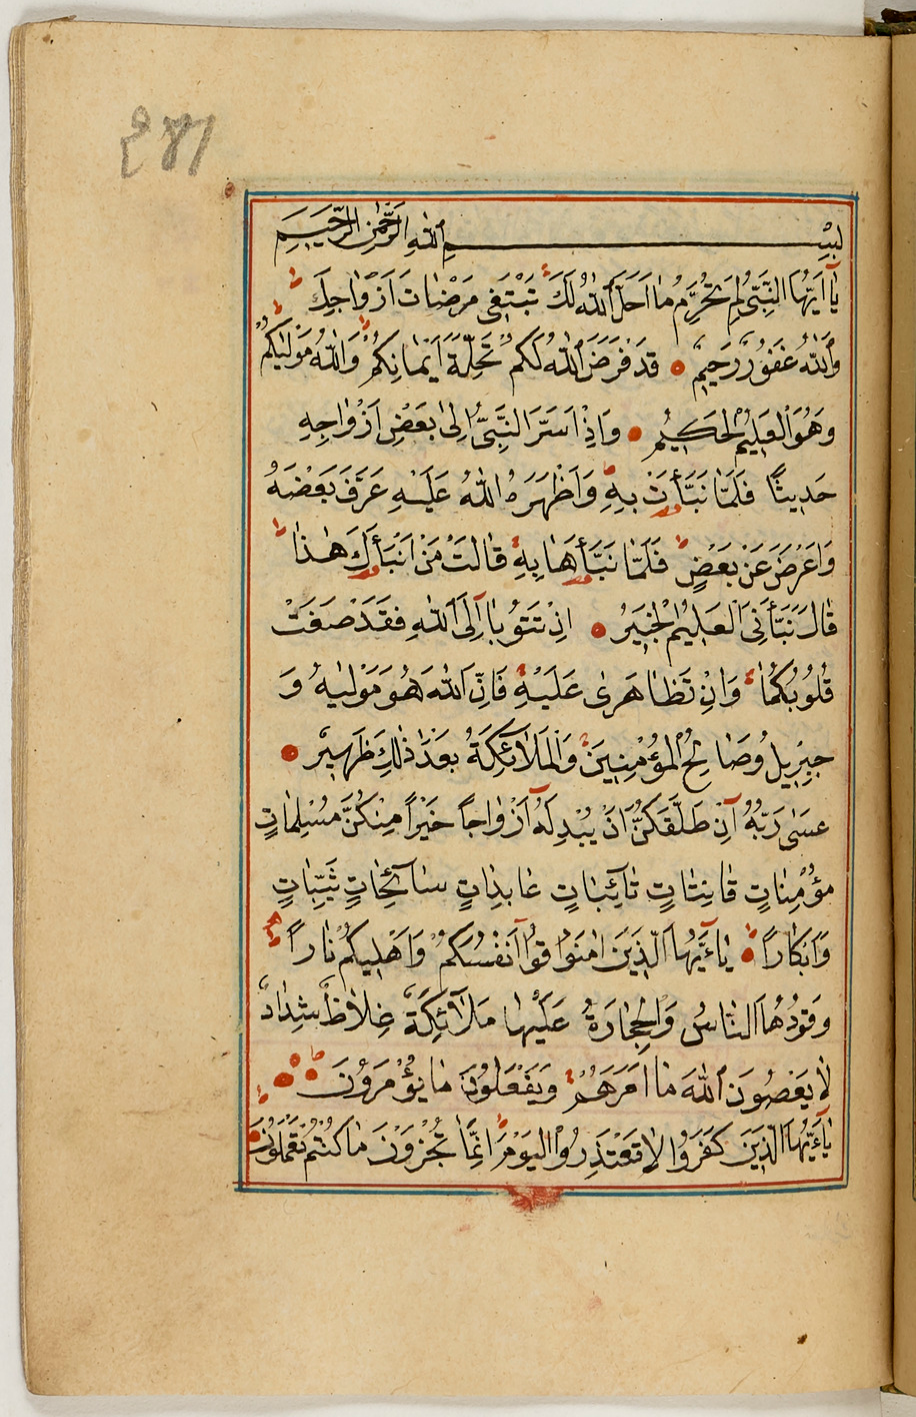 ٤٧١
بِسْمِ اللّٰهِ الرَّحْمٰنِ الرَّحِيمِ
يَآ اَيُّهَا النَّبِىُّ لِمَ تُحَرِّمُ مٰا اَحَلَّ اللّٰهُ لَكَ تَبْتَغِى مَرْضٰاتَ اَزْوٰاجِكَ
وَاللّٰهُ غَفُورٌ رَحِيمٌ قَدْ فَرَضَ اللّٰهُ لَكُمْ تَحِلَّةَ اَيْمٰانِكُمْ وَاللّٰهُ مَوْلٰيكُمْ
وَهُوَ الْعَلِيمُ الْحَكِيمُ وَاِذْ اَسَرَّ النَّبِىُّ اِلٰى بَعْضِ اَزْوٰاجِهِ
حَدِيثًا فَلَمّٰا نَبَّأَتْ بِهِ وَاَظْهَرَهُ اللّٰهُ عَلَيْهِ عَرَّفَ بَعْضَهُ
وَاَعْرَضَ عَنْ بَعْضٍ فَلَمّٰا نَبَّأَهٰا بِهِ قٰالَتْ مَنْ اَنْبَأَكَ هٰذٰا
قٰالَ نَبَّأَنِىَ الْعَلِيمُ الْخَبِيرُ اِنْ تَتُوبٰآ اِلَى اللّٰهِ فَقَدْ صَغَتْ
قُلُوبُكُمٰا وَاِنْ تَظٰاهَرٰى عَلَيْهِ فَاِنَّ اللّٰهَ هُوَ مَوْلٰيهُ وَ
جِبْرِيلُ وَصٰالِحُ الْمُؤْمِنِينَ وَالْمَلٰائِكَةُ بَعْدَ ذٰلِكَ ظَهِيرٌ
عَسٰى رَبُّهُ اِنْ طَلَّقَكُنَّ اَنْ يُبْدِلَهُ اَزْوٰاجاً خَيْراً مِنْكُنَّ مُسْلِمٰاتٍ
مُؤْمِنٰاتٍ قٰانِتٰاتٍ تٰائِبٰاتٍ عٰابِدٰاتٍ سٰائِحٰاتٍ ثَيِّبٰاتٍ
وَاَبْكٰاراً يٰاءَيُّهَا الَّذِينَ اٰمَنُوا قُوا اَنْفُسَكُمْ وَاَهْلِيكُمْ نٰاراً
وَقُودُهَا النّٰاسُ وَالْحِجٰارَةُ عَلَيْهٰا مَلٰائِكَةٌ غِلٰاظٌ شِدٰادٌ
لٰا يَعْصُونَ اللّٰهَ مٰا اَمَرَهُمْ وَيَفْعَلُونَ مٰا يُؤْمَرُونَ
يٰاءَيُّهَا الَّذِينَ كَفَرُوا لٰا تَعْتَذِرُوا الْيَوْمَ اِنَّمٰا تُجْزَوْنَ مٰا كُنْتُمْ تَعْمَلُونَ